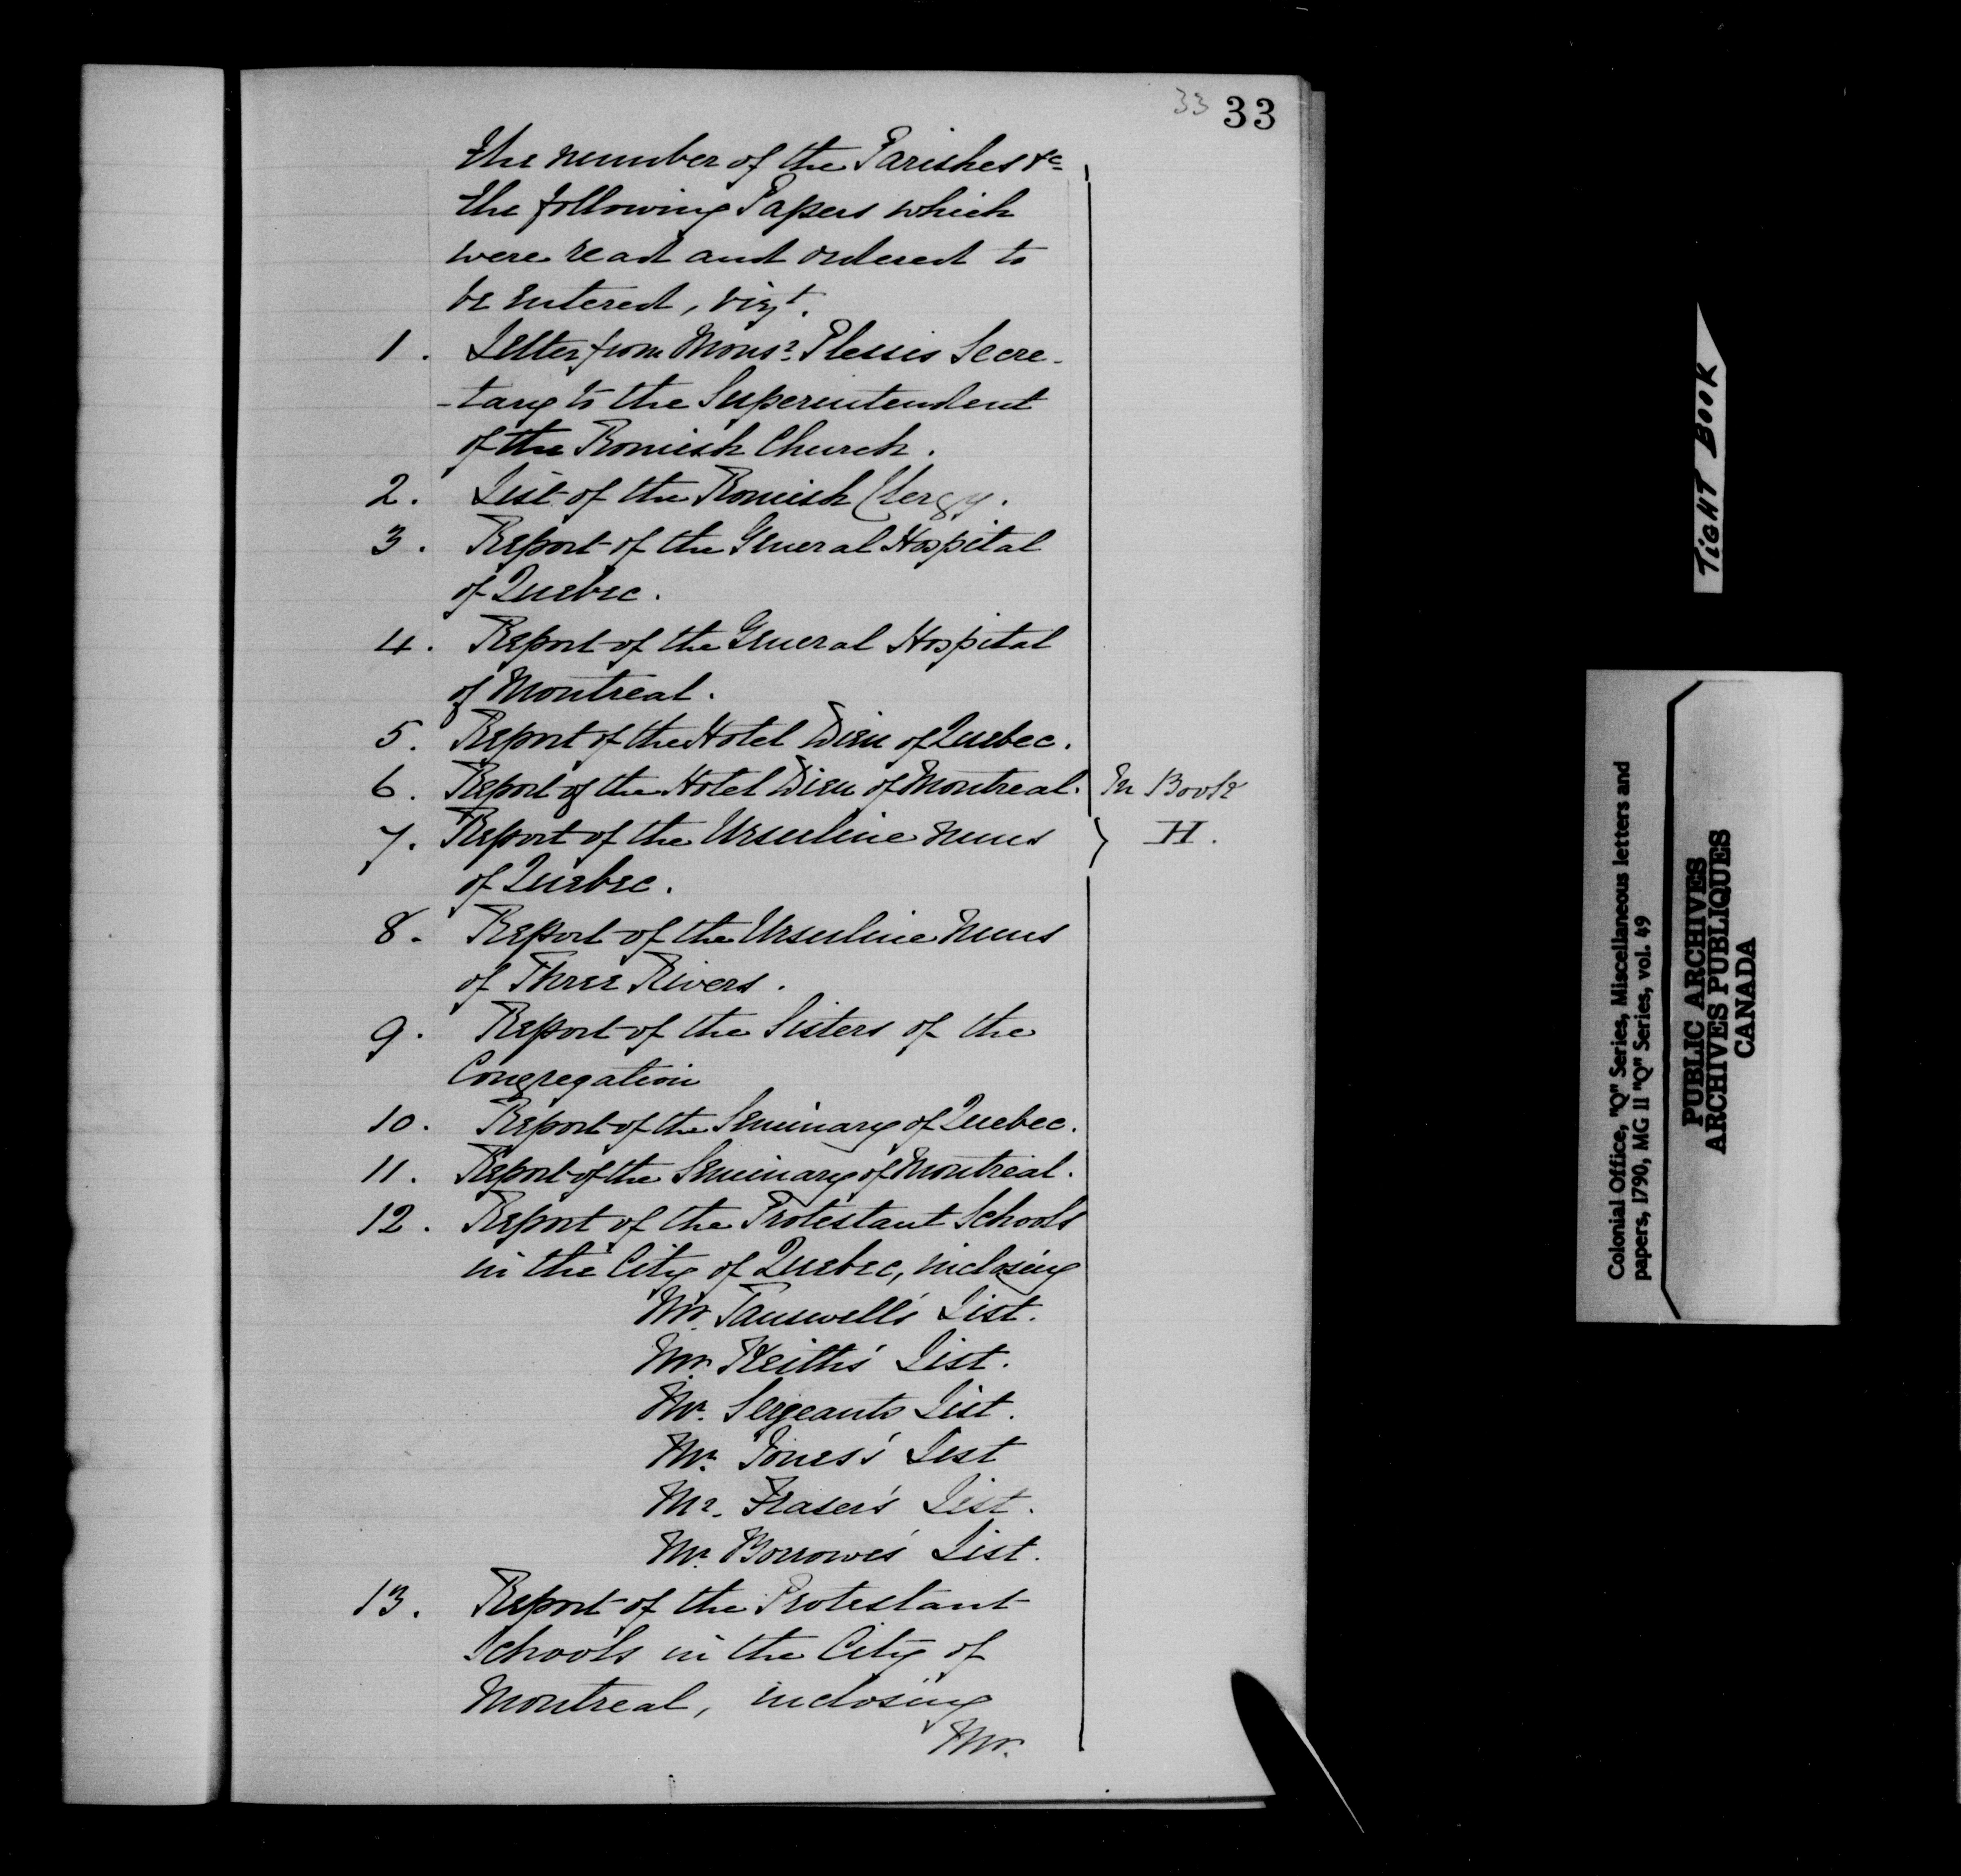 33 33
the number of the Parishes &c
the following Papers which
were read and ordered to
be entered, vizt.
1. Letter from Monsr. Plessis Secre-
-tary to the Superintendent
of the Romish Church.
2. List of the Romish Clergy.
3. Report of the General Hospital
of Quebec.
4. Report of the General Hospital
of Montreal.
5. Report of the Hotel Dieu of Quebec.
6. Report of the Hotel Dieu of Montreal.
7. Report of the Ursuline Nuns
of Quebec.
8. Report of the Ursuline Nuns
of Three Rivers.
9. Report of the Sisters of the
Congregation
10. Report of the Seminary of Quebec.
11. Report of the Seminary of Montreal.
12. Report of the Protestant Schools
in the City of Quebec, inclosing
Mr. Tanswell's List.
Mr. Keith's List.
Mr. Sergeants List.
Mr. Jones's List
Mr. Fraser's List.
Mr. Borrowe's List.
13. Report of the Protestant
Schools in the City of
Montreal, inclosing
Mr.
In Book
H.
TIGHT BOOK
Colonial Office, "Q" Series, Miscellaneous letters and
papers, 1790, MG 11 "Q" Series, vol. 49
PUBLIC ARCHIVES
ARCHIVES PUBLIQUES
CANADA